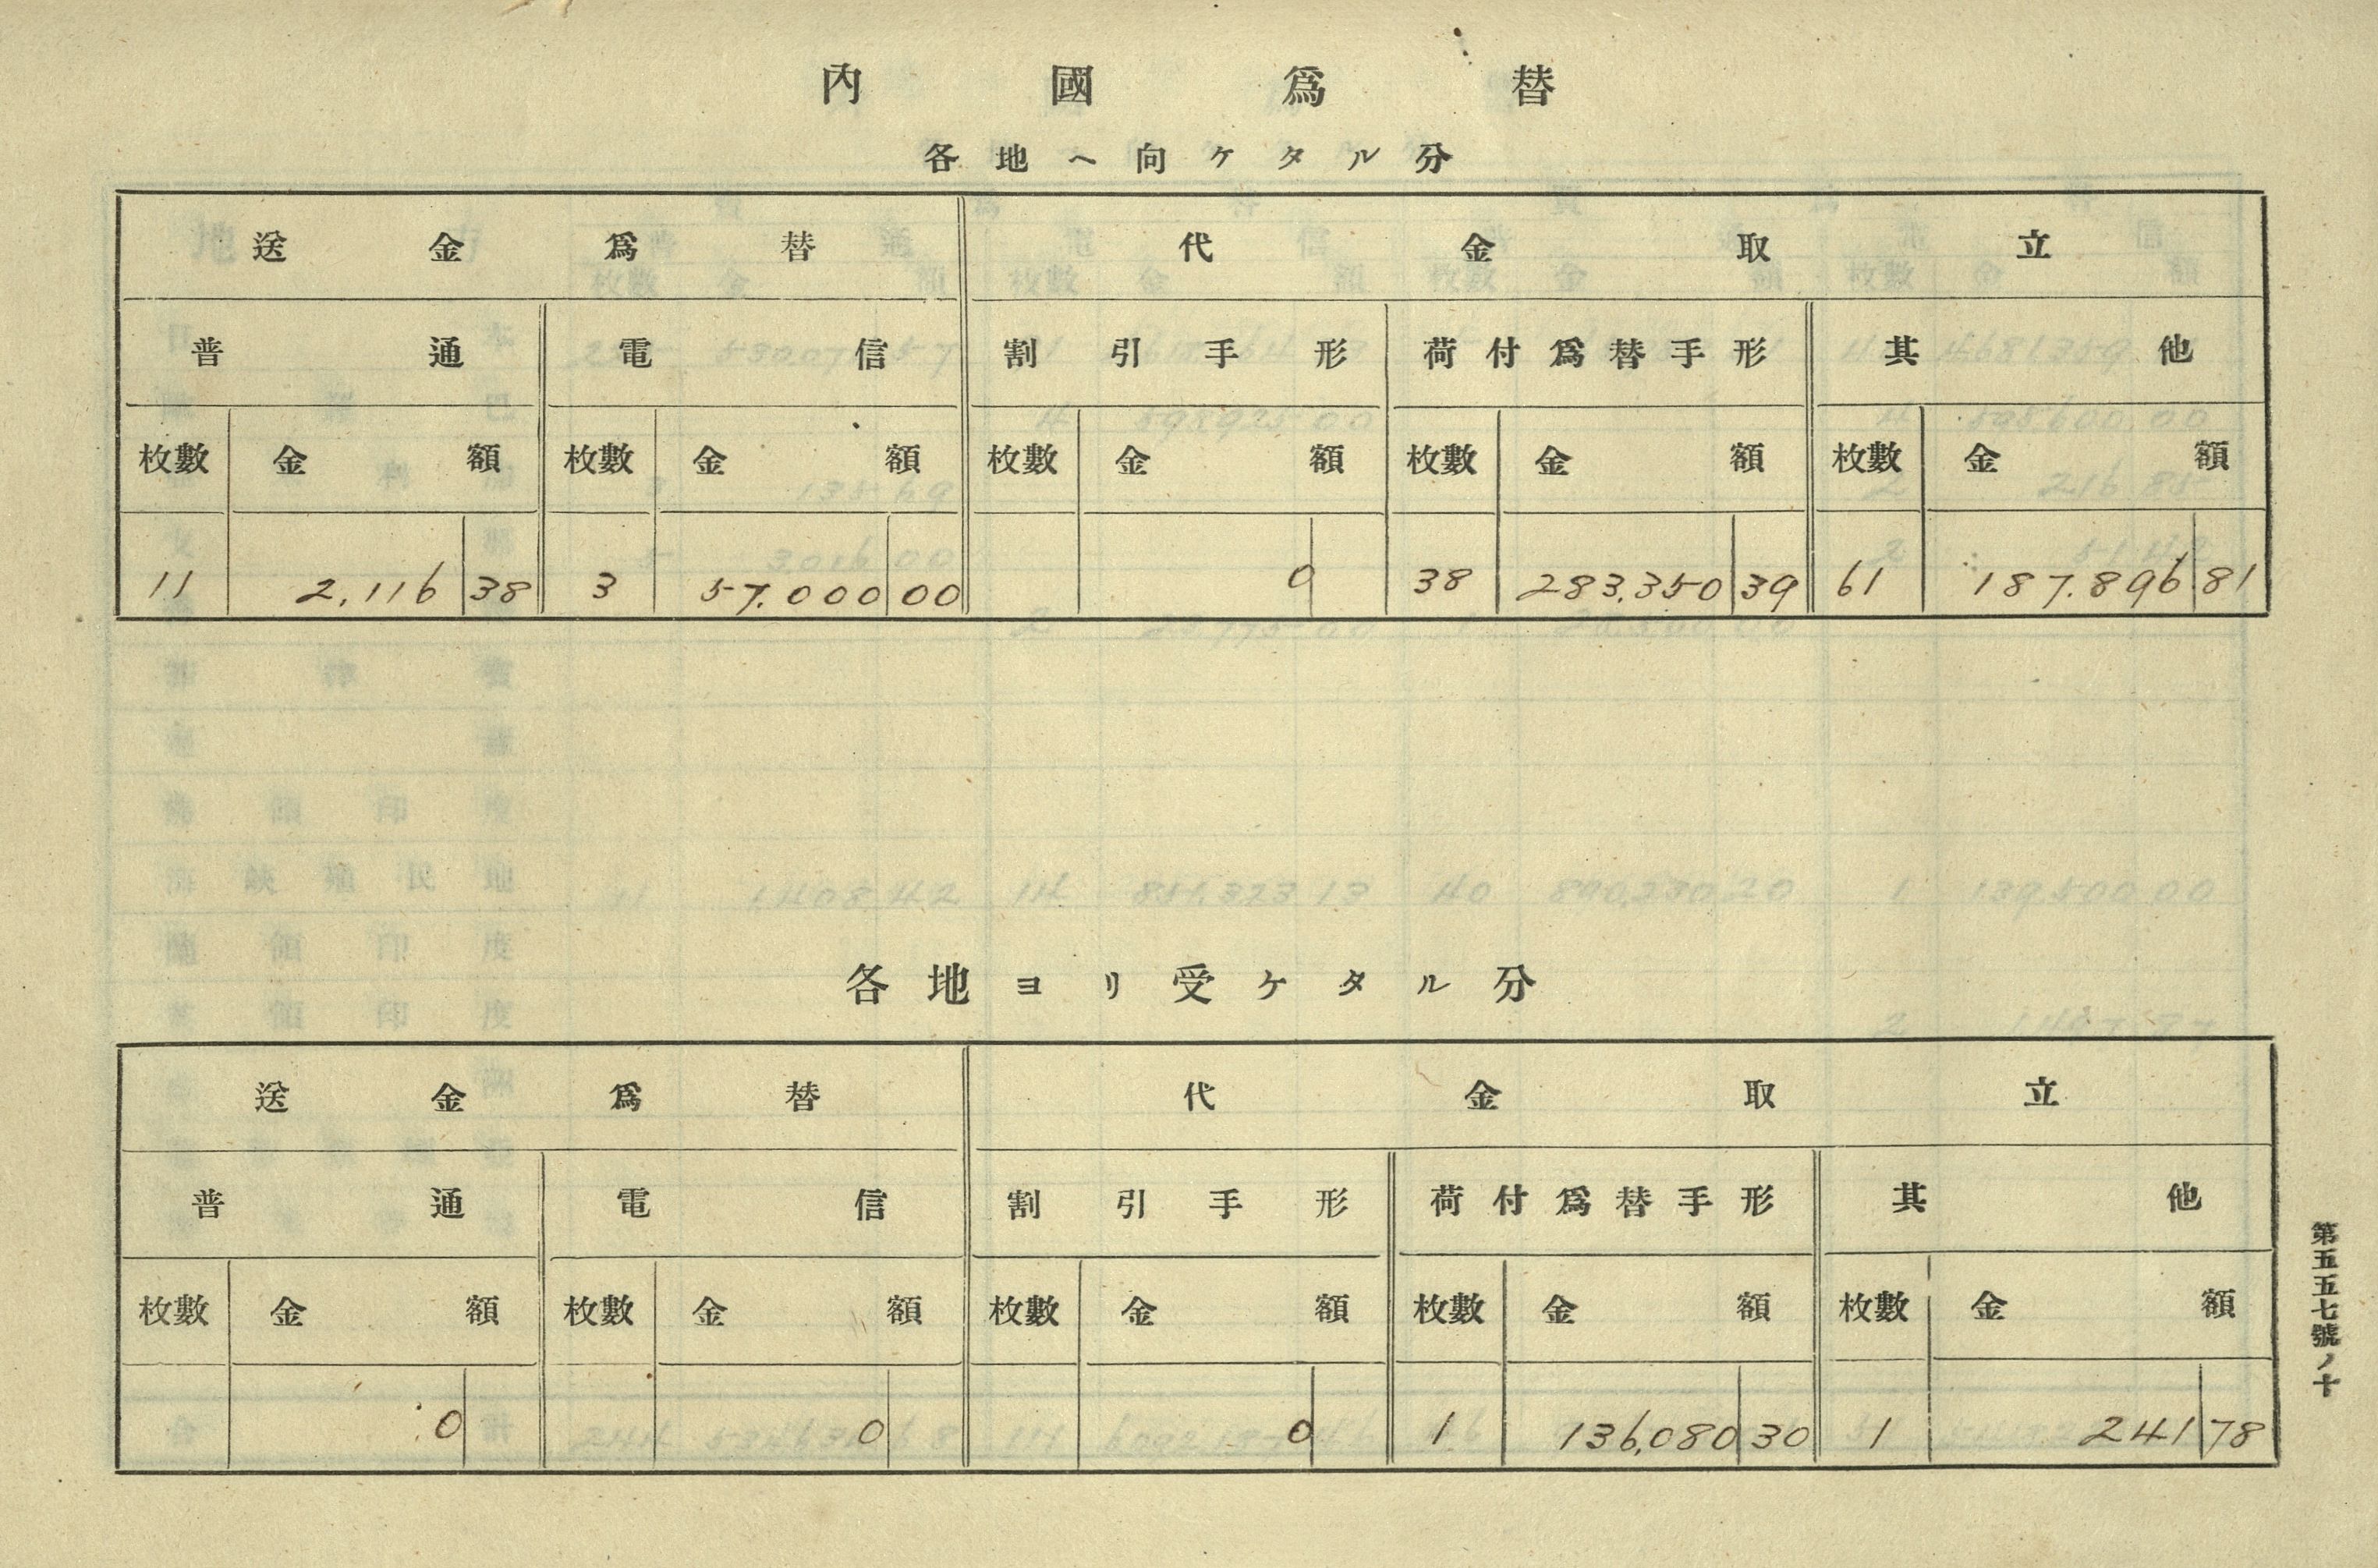 內國爲替
各地ヘ向ケタル分
送金爲替 代金取立
普通 電信 割引手形 荷付爲替手形 其他
枚數 金額 枚數 金額 枚數 金額 枚數 金額 枚數 金額
11 2,116 38 3 57,000 00 0 38 283,350 39 61 187,896 81
各地ヨリ受ケタル分
送金爲替 代金取立
普通 電信 割引手形 荷付爲替手形 其他
枚數 金額 枚數 金額 枚數 金額 枚數 金額 枚數 金額
0 0 0 1 136,080 30 1 241 78
第五五七號ノ十